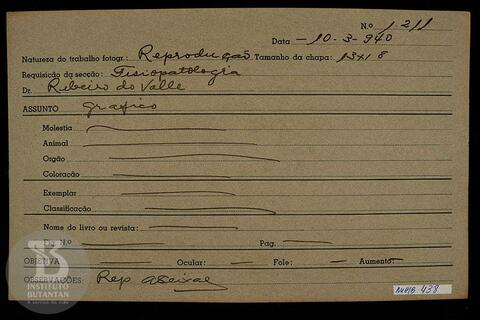 N.o 1-211
Data -10-3-940
Natureza do trabalho fotogr.: Reprodução Tamanho da chapa: 13x18
Requisição da secção: Fisiopatologia
Dr. Ribeiro do Valle
ASSUNTO grafico
Molestia
Animal
Orgão
Coloração
Exemplar
Classificação
Nome do livro ou revista:
Pag.
OBJETIVA Ocular: Fole: Aumento:
OBSERVAÇÕES: Rep.
438
INSTITUTO
BUTANTAN
A serviço da vida